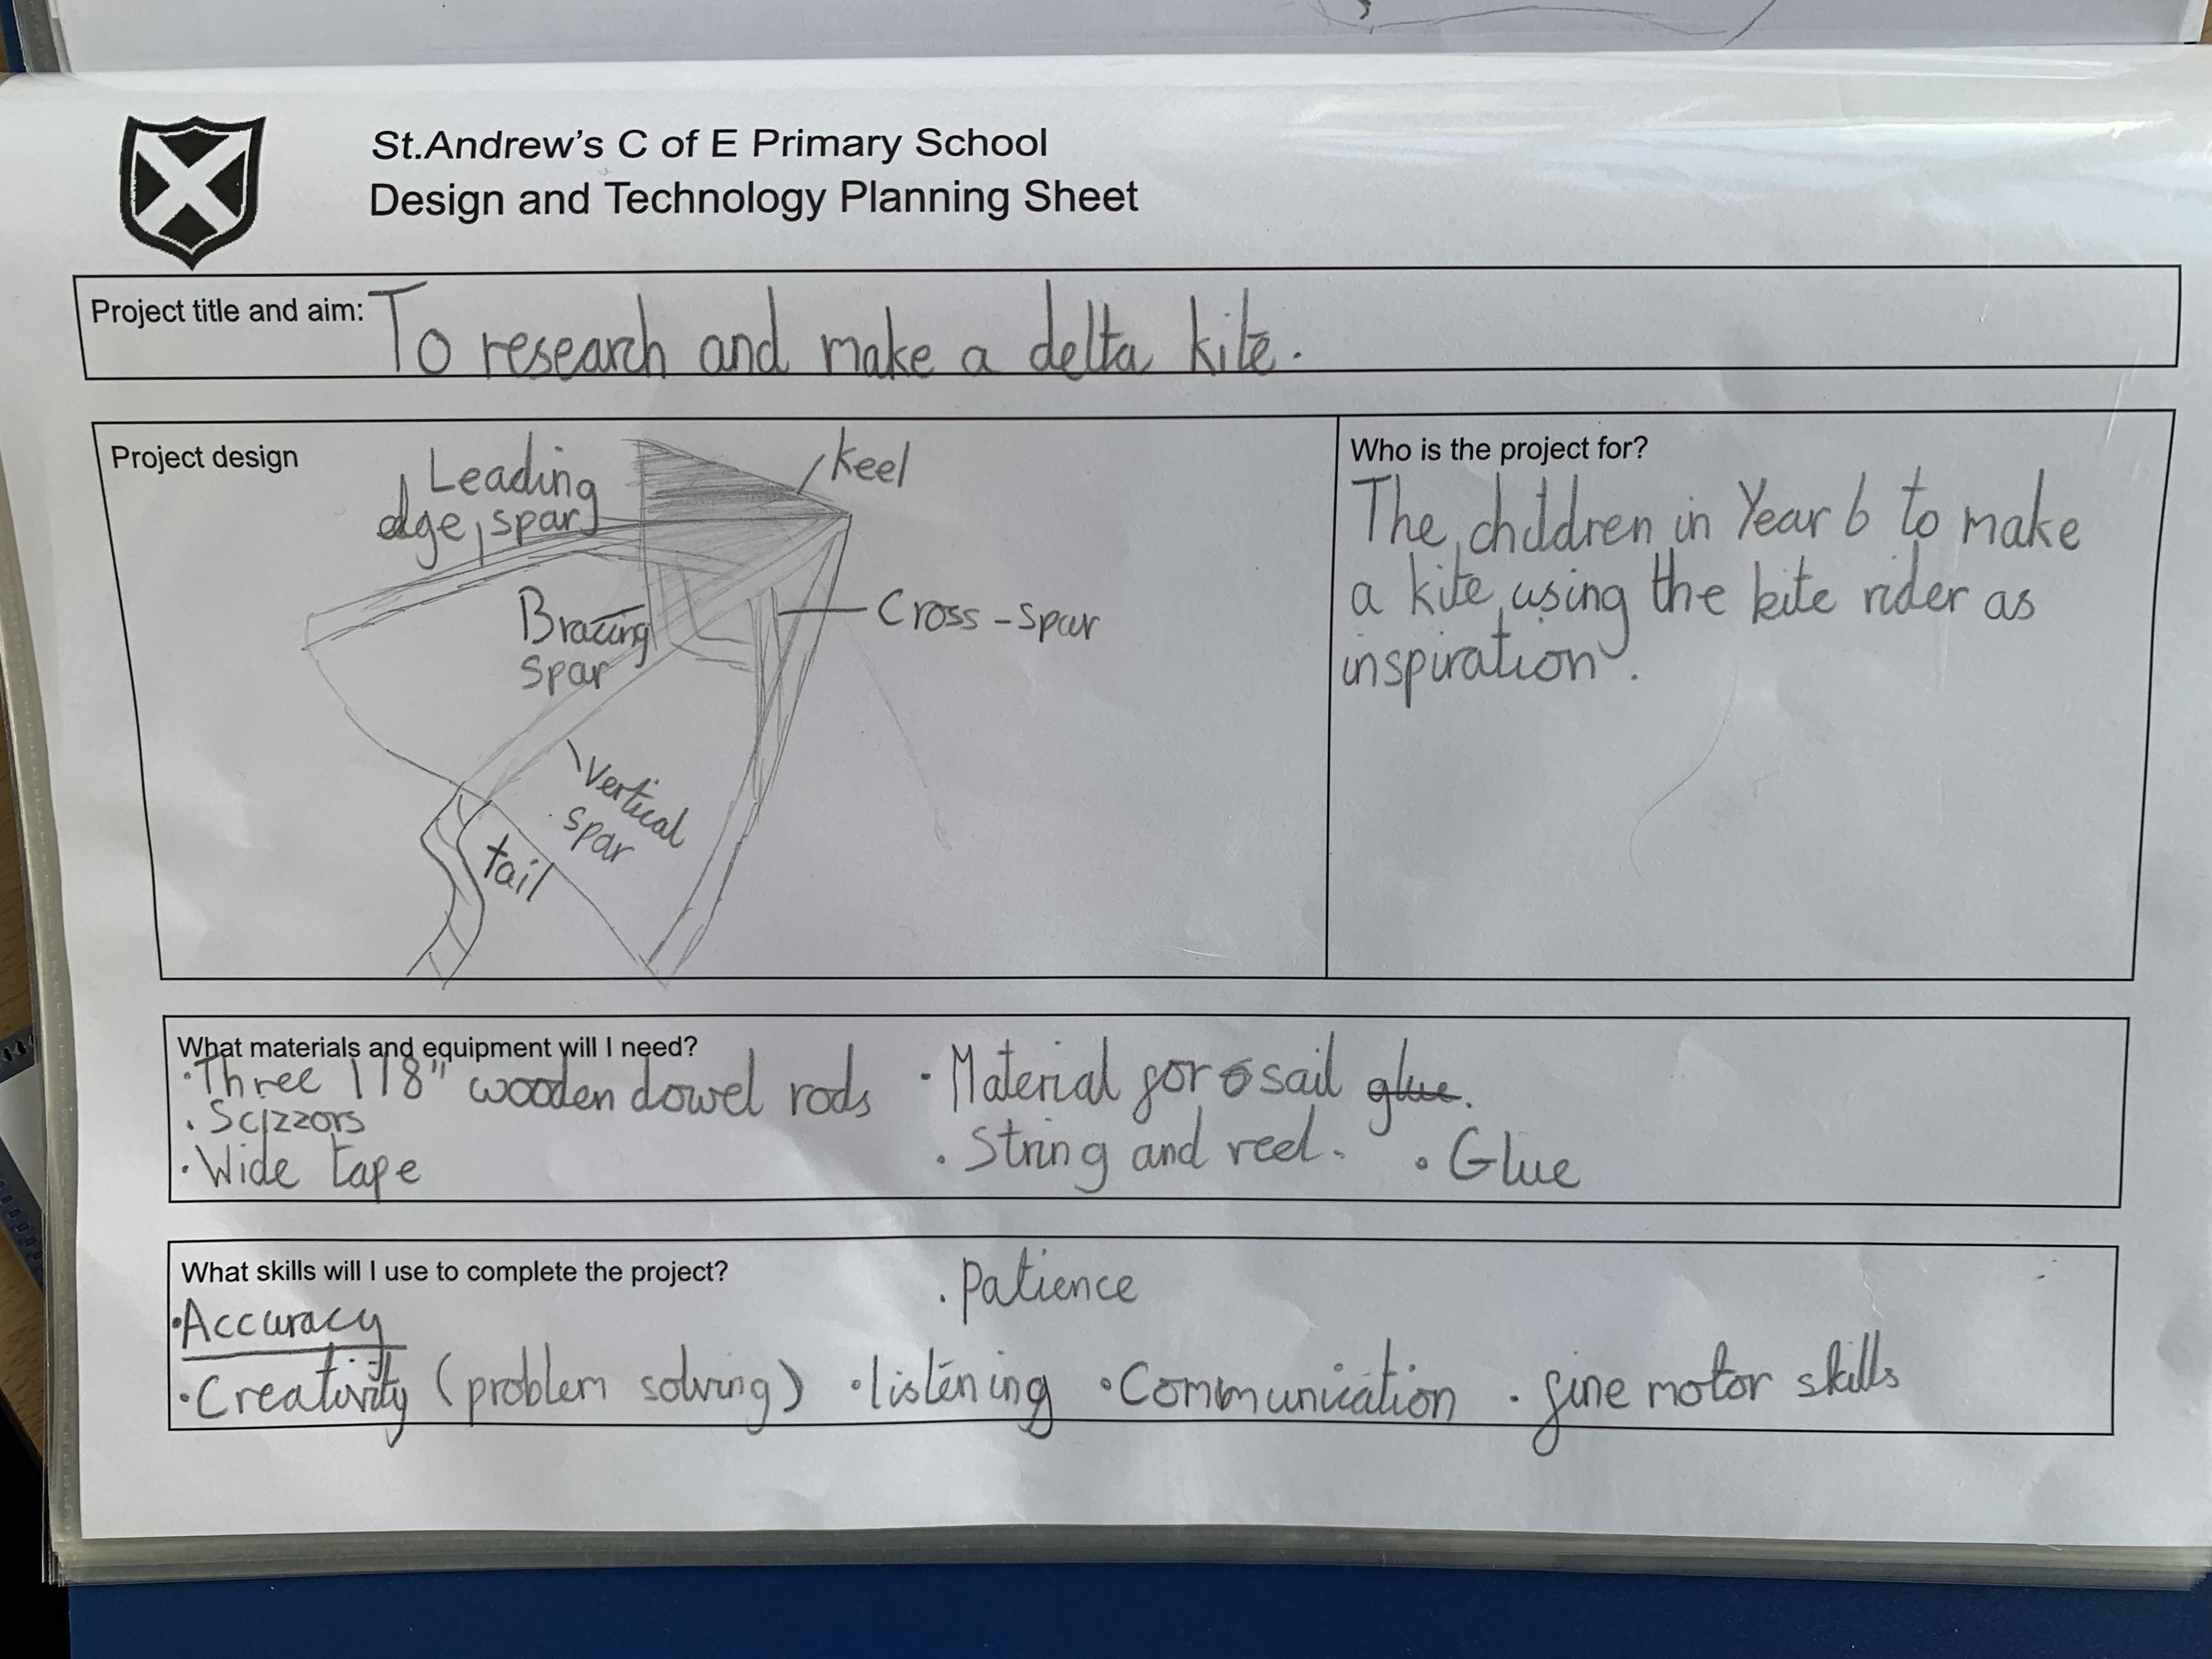 St.Andrew's C of E Primary School
Design and Technology Planning Sheet
Project title and aim: To research and make a delta kite.
Project design
Leading
edge spar
Keel
Bracing
spar
Cross-spar
Vertical
spar
tail
Who is the project for?
The children in Year 6 to make
a kite using the kite rider as
inspiration.
What materials and equipment will I need?
· Three 1/8" wooden dowel rods
· Scizzors
· Wide tape
· Material for sail glue.
· String and reel.
· Glue
What skills will I use to complete the project?
· Patience
· Accuracy
· Creativity (problem solving) · listening · Communication · fine motor skills